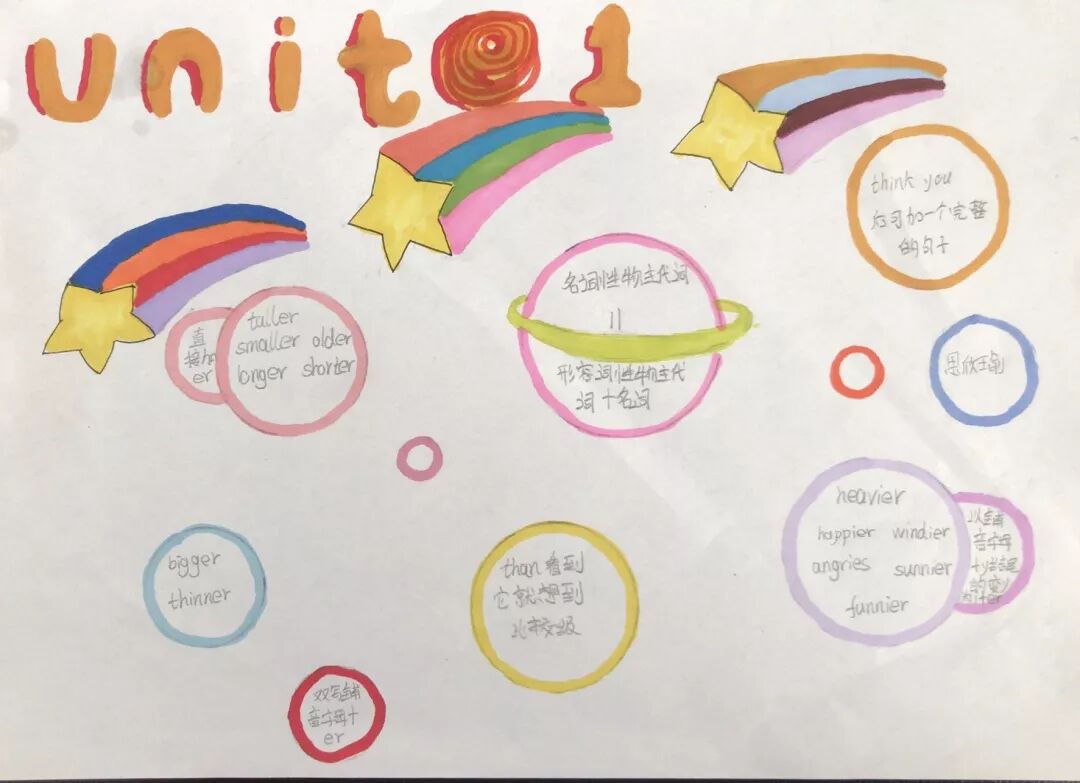 unit 1
think you
后可加一个完整
的句子
名词性物主代词
=
形容词性物主代
词+名词
直
接加
er
taller
smaller older
longer shorter
heavier
happier windier
angries sunnier
funnier
以辅
音字母
+y结尾
的变y
为i+er
bigger
thinner
than看到
它就想到
比较级
双写辅
音字母+
er